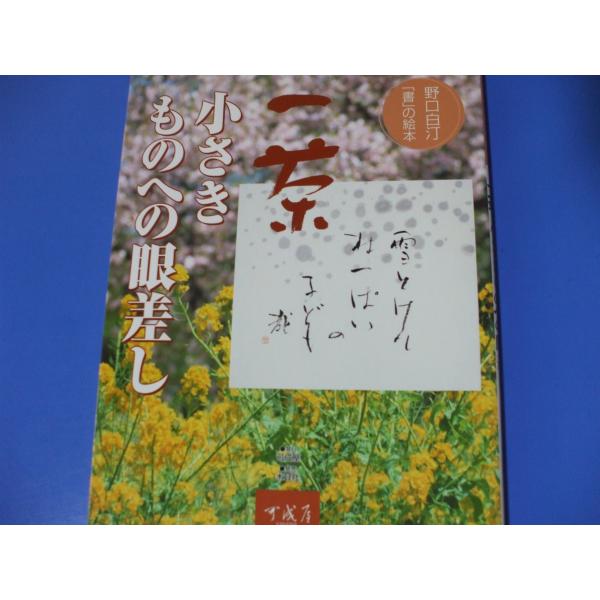 野口白汀
「書」の絵本
一茶
小さき
ものへの眼差し
雪とけて
村一ぱい
の
子ども
哉
可成屋